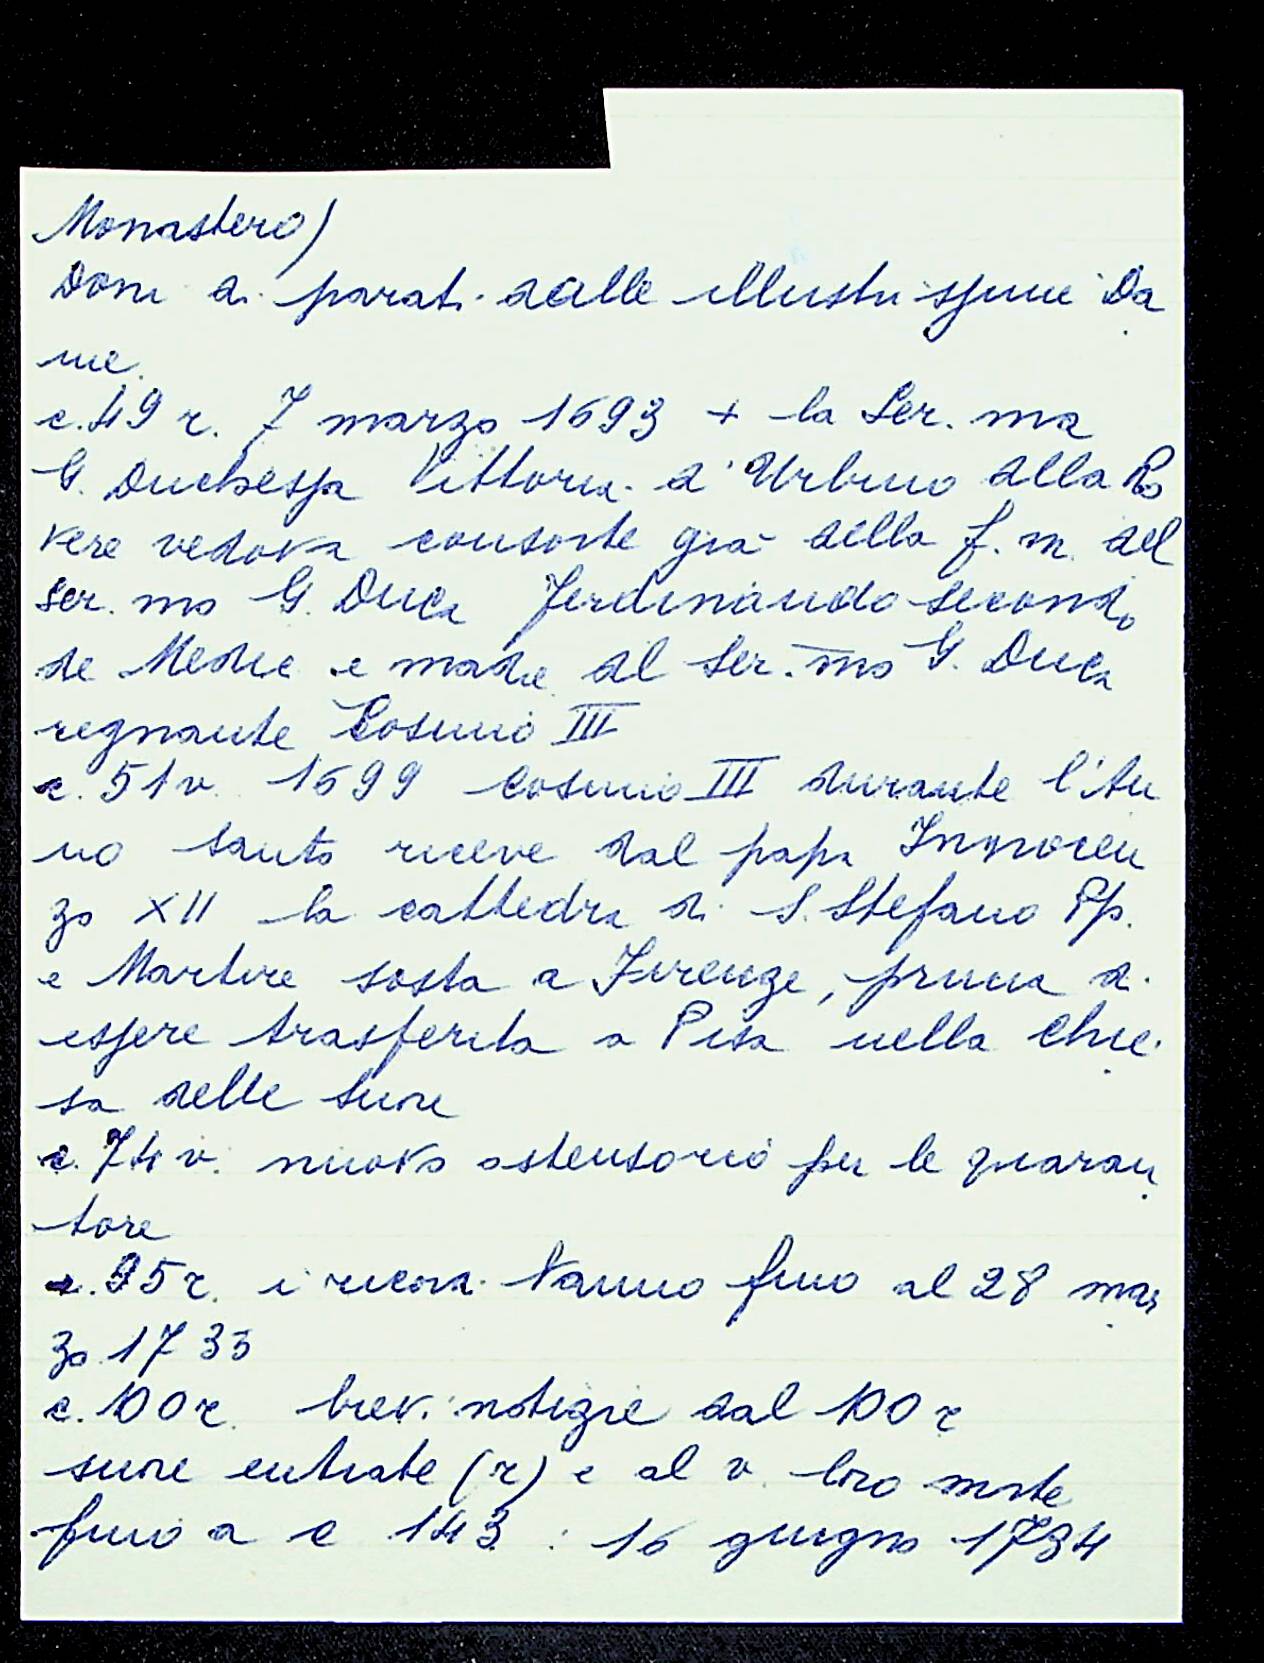 Monastero)
Doni di parati dalle illustrissime Da
me.
c. 49 r. 7 marzo 1693 + la Ser. ma
G. Duchessa Vittoria d'Urbino della Ro
vere vedova consorte già della f. m. del
ser. mo G. Duca Ferdinando secondo
de Medici e madre del Ser. mo G. Duca
regnante Cosimo III
c. 51 v. 1699 Cosimo III durante l'An
no santo riceve dal papa Innocen
zo XII la cattedra di S. Stefano Pp.
e Martire sosta a Firenze, prima di
essere trasferita a Pisa nella Chie
sa delle suore
c. 74 v. nuovo ostensorio per le quaran
tore
c. 95 r. i ricordi vanno fino al 28 mar
zo 1733
c. 100 r. brevi notizie dal 100 r
suore entrate (r) e al v. loro morte
fino a c 143 : 16 giugno 1734